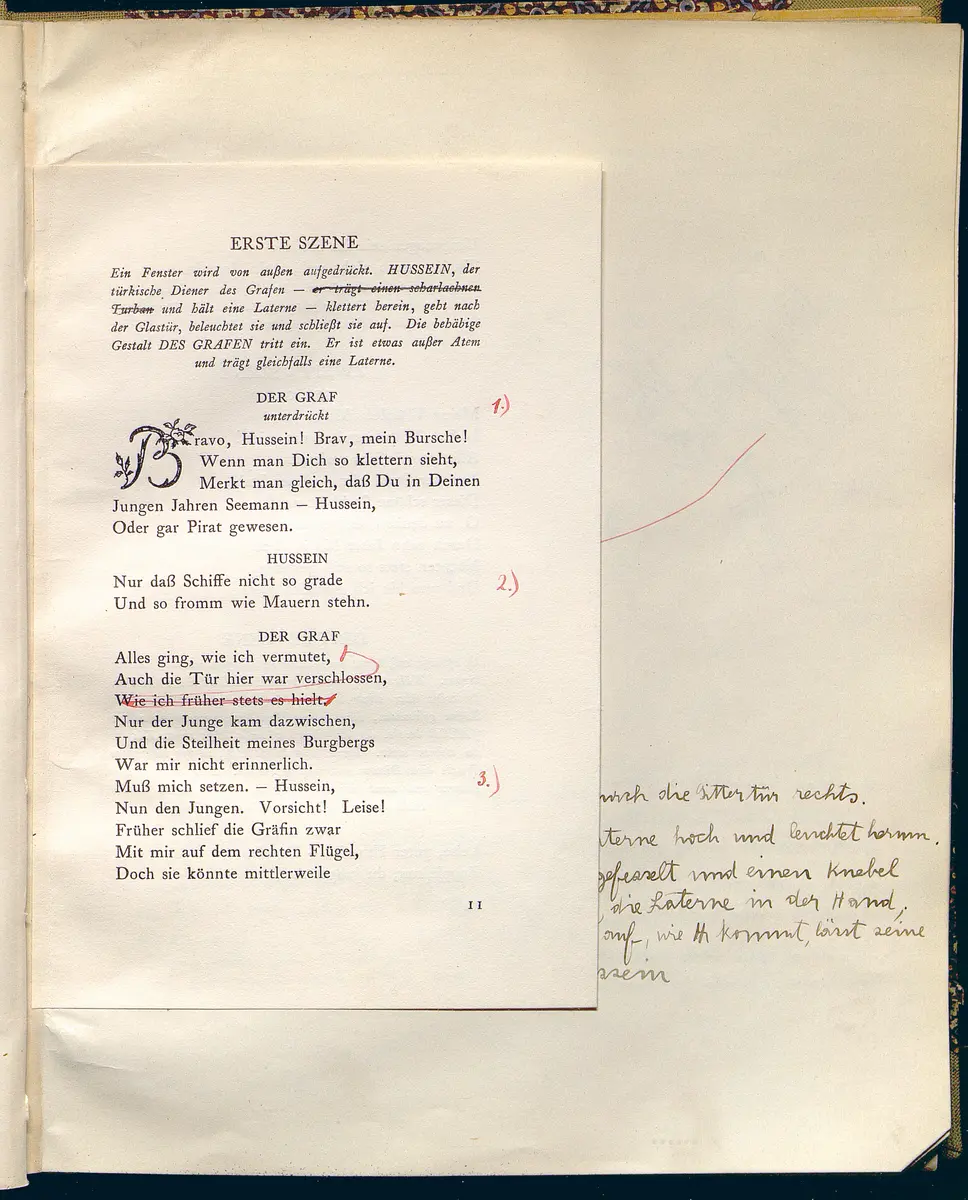 ERSTE SZENE
Ein Fenster wird von außen aufgedrückt. HUSSEIN, der
türkische Diener des Grafen — er trägt einen scharlachnen
Turban und hält eine Laterne — klettert herein, geht nach
der Glastür, beleuchtet sie und schließt sie auf. Die behäbige
Gestalt DES GRAFEN tritt ein. Er ist etwas außer Atem
und trägt gleichfalls eine Laterne.
DER GRAF
1.)
unterdrückt
Bravo, Hussein! Brav, mein Bursche!
Wenn man Dich so klettern sieht,
Merkt man gleich, daß Du in Deinen
Jungen Jahren Seemann — Hussein,
Oder gar Pirat gewesen.
HUSSEIN
Nur daß Schiffe nicht so grade
2.)
Und so fromm wie Mauern stehn.
DER GRAF
Alles ging, wie ich vermutet,
Auch die Tür hier war verschlossen,
Wie ich früher stets es hielt.
Nur der Junge kam dazwischen,
Und die Steilheit meines Burgbergs
War mir nicht erinnerlich.
Muß mich setzen. — Hussein,
3.)
Nun den Jungen. Vorsicht! Leise!
Früher schlief die Gräfin zwar
Mit mir auf dem rechten Flügel,
Doch sie könnte mittlerweile
11
urch die Gittertür rechts.
terne hoch und leuchtet herum.
gefesselt und einen Knebel
, die Laterne in der Hand,
auf, wie H kommt, lässt seine
ssein